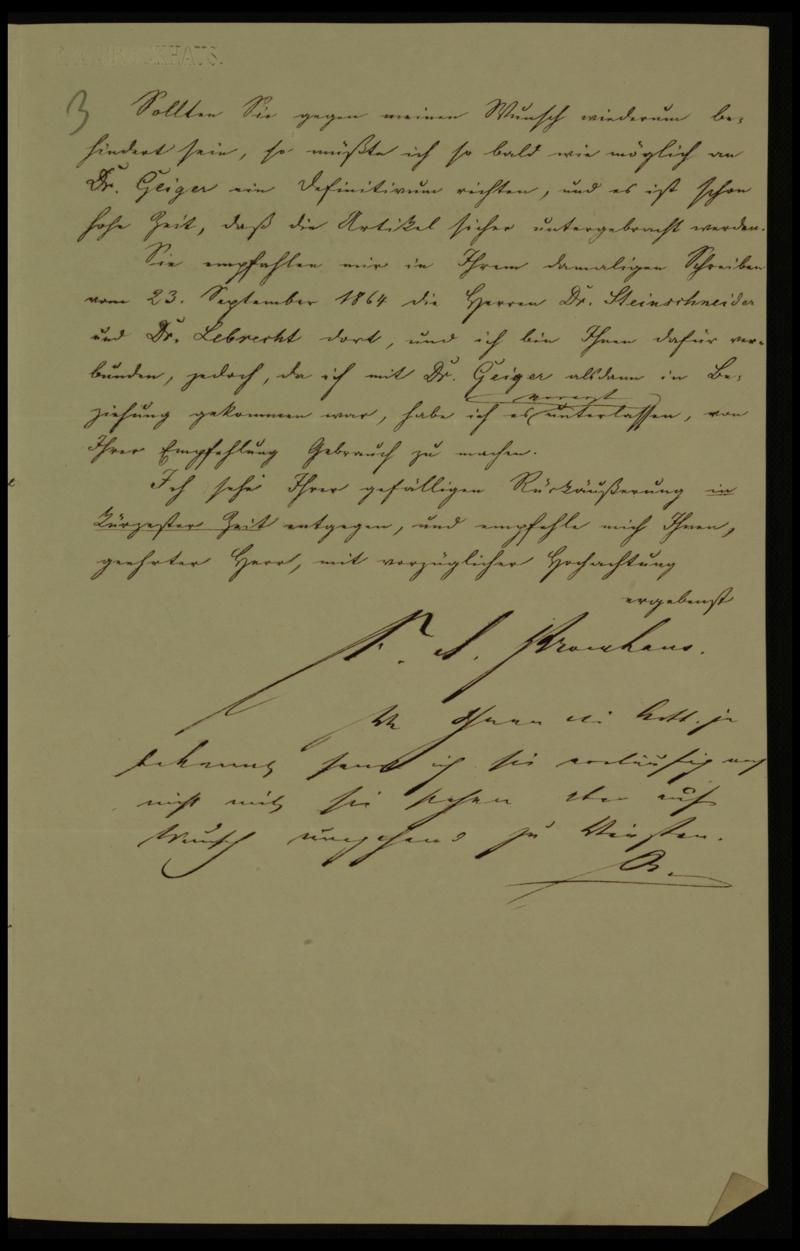 3
Sollten Sie gegen meinen Wunsch wiederum be-
hindert sein, so müßte ich so bald wie möglich an
Dr. Geiger ein Definitivum richten, und es ist schon
hohe Zeit, daß die Artikel sicher untergebracht werden.
Sie empfahlen mir in Ihrem damaligen Schreiben
vom 23. September 1864 die Herren Dr. Steinschneider
und Dr. Lebrecht dort, und ich bin Ihnen dafür ver-
bunden, jedoch, da ich mit Dr. Geiger alsdann in Be-
vorerst
ziehung gekommen war, habe ich es unterlassen, von
Ihrer Empfehlung Gebrauch zu machen.
Ich sehe Ihrer gefälligen Rückäußerung in
kürzester Zeit entgegen, und empfehle mich Ihnen,
geehrter Herr, mit vorzüglicher Hochachtung
ergebenst
F. A. Brockhaus.
Da Ihnen die Artt. ja
bekannt sende ich sie vorläufig noch
nicht mit, sie stehen aber auf
Wunsch umgehend zu Diensten.